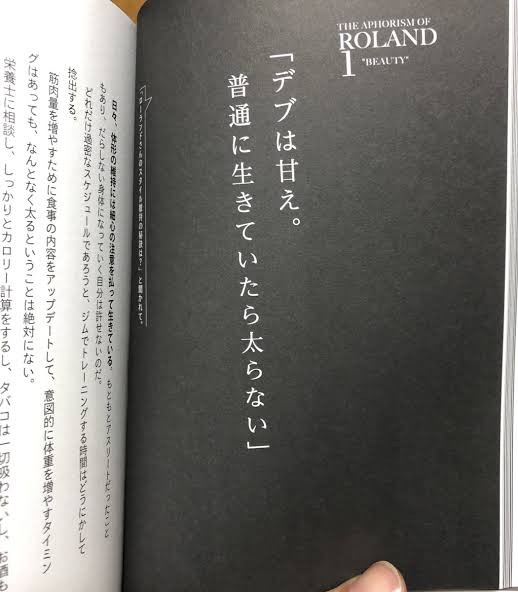 THE APHORISM OF
ROLAND
1
"BEAUTY"
「デブは甘え。
普通に生きていたら太らない」
「ローランドさんのスタイル維持の秘訣は?」と聞かれて。
日々、体形の維持には細心の注意を払って生きている。もともとアスリートだったこと
もあり、だらしない身体になっていく自分は許せないのだ。
どれだけ過密なスケジュールであろうと、ジムでトレーニングする時間はどうにかして
捻出する。
筋肉量を増やすために食事の内容をアップデートして、意図的に体重を増やすタイミン
グはあっても、なんとなく太るということは絶対にない。
栄養士に相談し、しっかりとカロリー計算をするし、タバコは一切吸わないし、お酒も